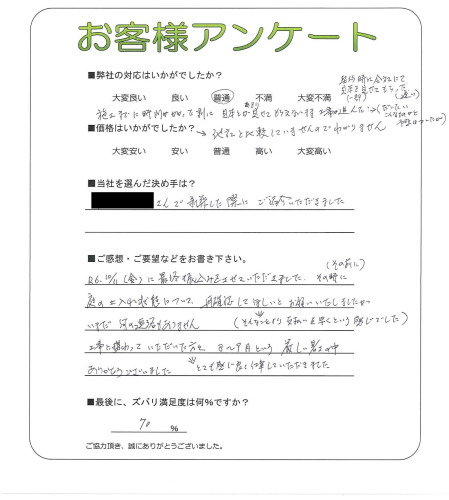 お客様アンケート
■弊社の対応はいかがでしたか？
大変良い 良い 普通 不満 大変不満
施工までに時間がかかった割に 見本とか見せてもらえないまま工事が進んだ
■価格はいかがでしたか？ → 他社と比較していませんのでわかりません
大変安い 安い 普通 高い 大変高い
■当社を選んだ決め手は？
さんで新築した際にご紹介いただきました
■ご感想・ご要望などをお書き下さい。
(その前に)
R6.10/11(金)に最終振込みをさせていただきました。その時に
庭の土入れ状態について、再確認してほしいとお願いいたしましたが
いまだ 何の連絡もありません (そんなことより支払いを早くという感じでした)
工事に携わっていただいた方々 8〜9月という 厳しい暑さの中
ありがとうございました とても感じ良く仕事していただきました
■最後に、ズバリ満足度は何%ですか？
70 %
ご協力頂き、誠にありがとうございました。